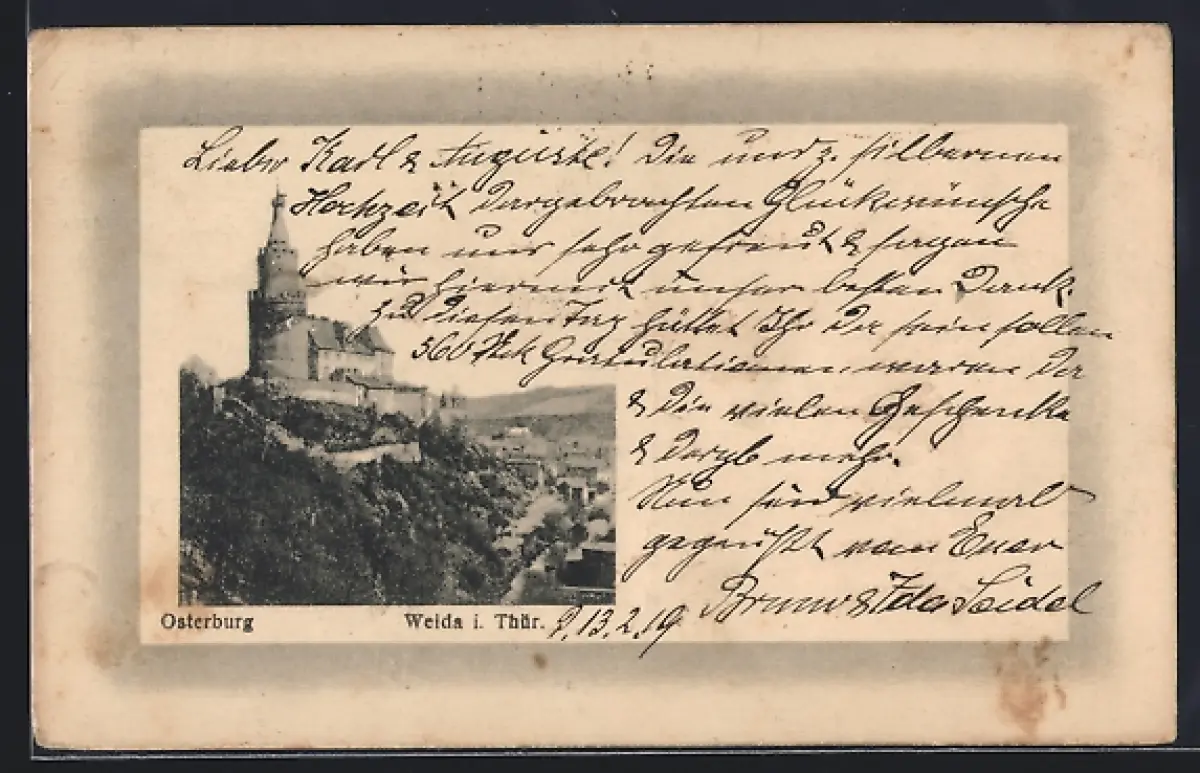 Lieber Karl & Auguste! Die uns z. silbernen
Hochzeit dargebrachten Glückwünsche
haben uns sehr gefreut & sagen
wir hiermit unser besten Dank.
Zu diesen Tag hättet Ihr da sein sollen
560 Stck Gratulationen waren da
& die vielen Geschenke
& dergl. mehr.
Nun seid vielmal
gegrüßt von Euer
Bruno & Ida Seidel
Osterburg Weida i. Thür. 13.2.19